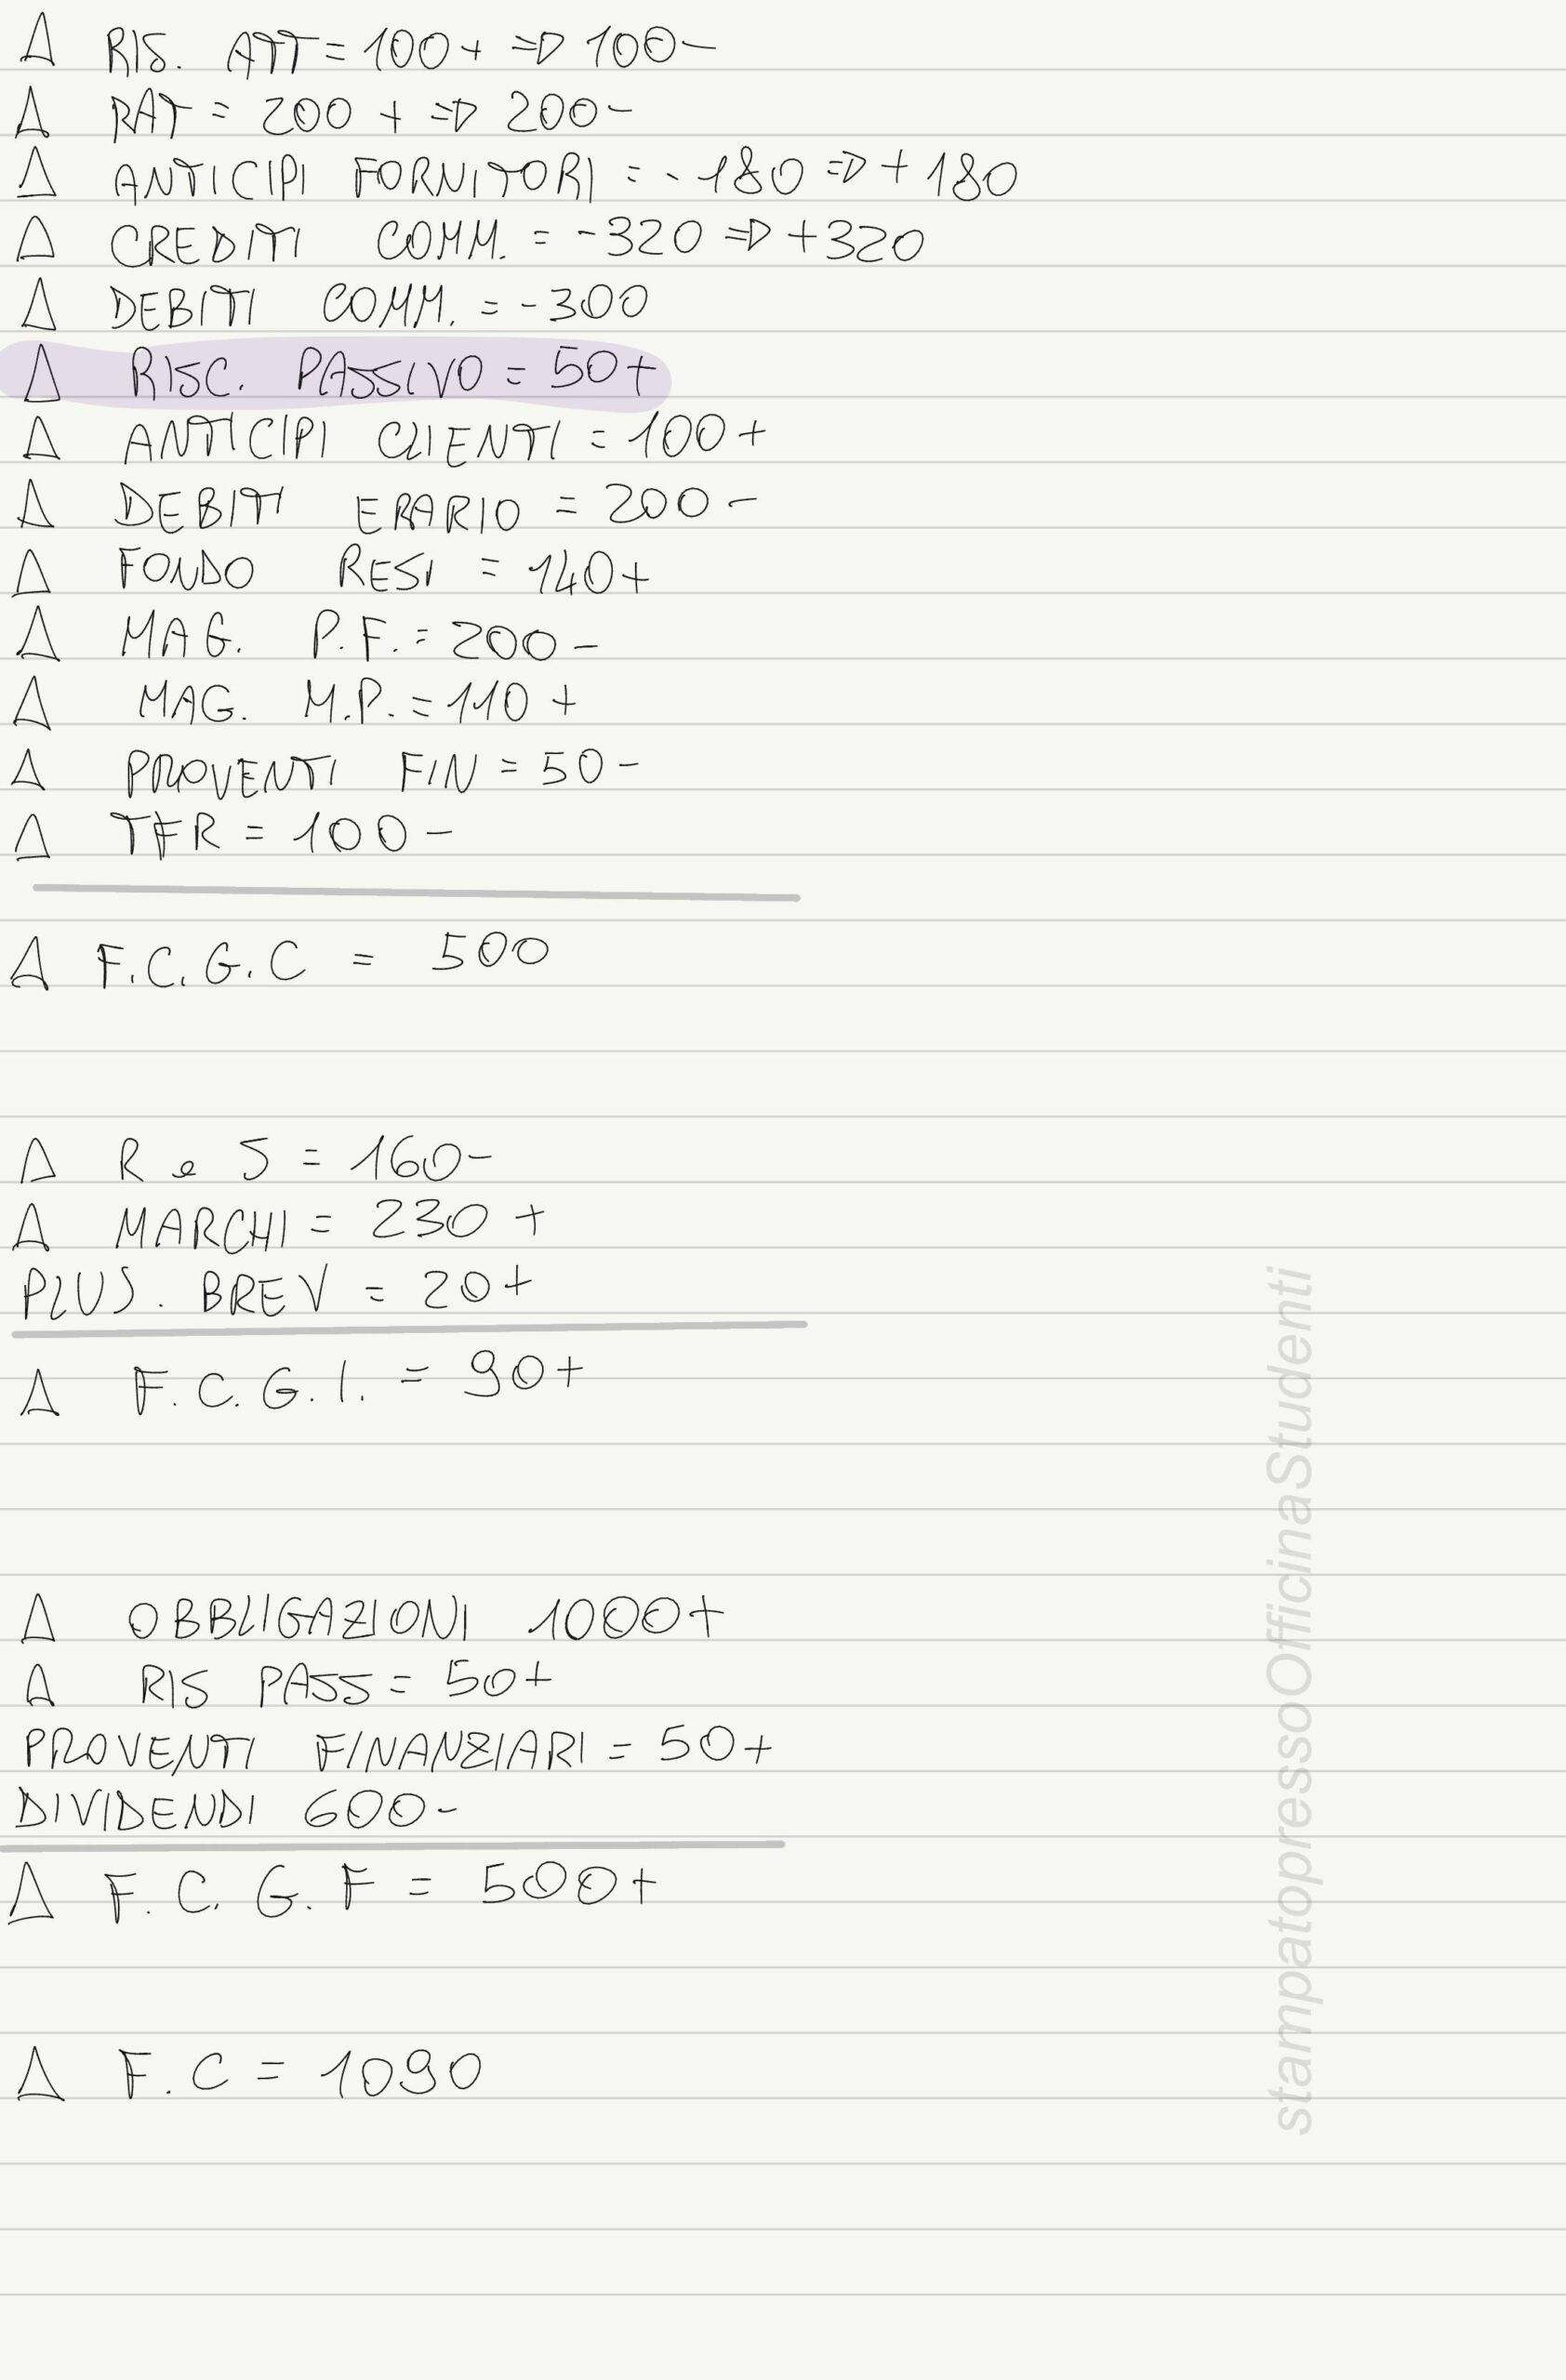 Δ RIS. ATT = 100+ => 100-
Δ RAT = 200 + => 200-
Δ ANTICIPI FORNITORI = -180 => +180
Δ CREDITI COMM. = -320 => +320
Δ DEBITI COMM. = -300
Δ RISC. PASSIVO = 50+
Δ ANTICIPI CLIENTI = 100+
Δ DEBITI ERARIO = 200-
Δ FONDO RESI = 140+
Δ MAG. P.F. = 200-
Δ MAG. M.P. = 110 +
Δ PROVENTI FIN = 50-
Δ TFR = 100-
Δ F.C.G.C = 500
Δ R e S = 160-
Δ MARCHI = 230 +
PLUS. BREV = 20+
Δ F.C.G.I. = 90+
Δ OBBLIGAZIONI 1000+
Δ RIS PASS = 50+
PROVENTI FINANZIARI = 50+
DIVIDENDI 600-
Δ F.C.G.F = 500+
Δ F.C = 1090
stampatopressoOfficinaStudenti